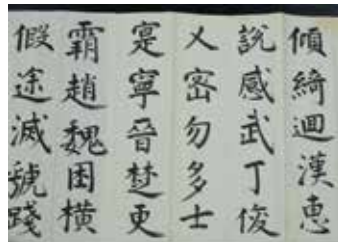 傾綺迴漢恵
說感武丁俊
乂密勿多士
寔寧晉楚更
霸趙魏困橫
假途滅虢踐